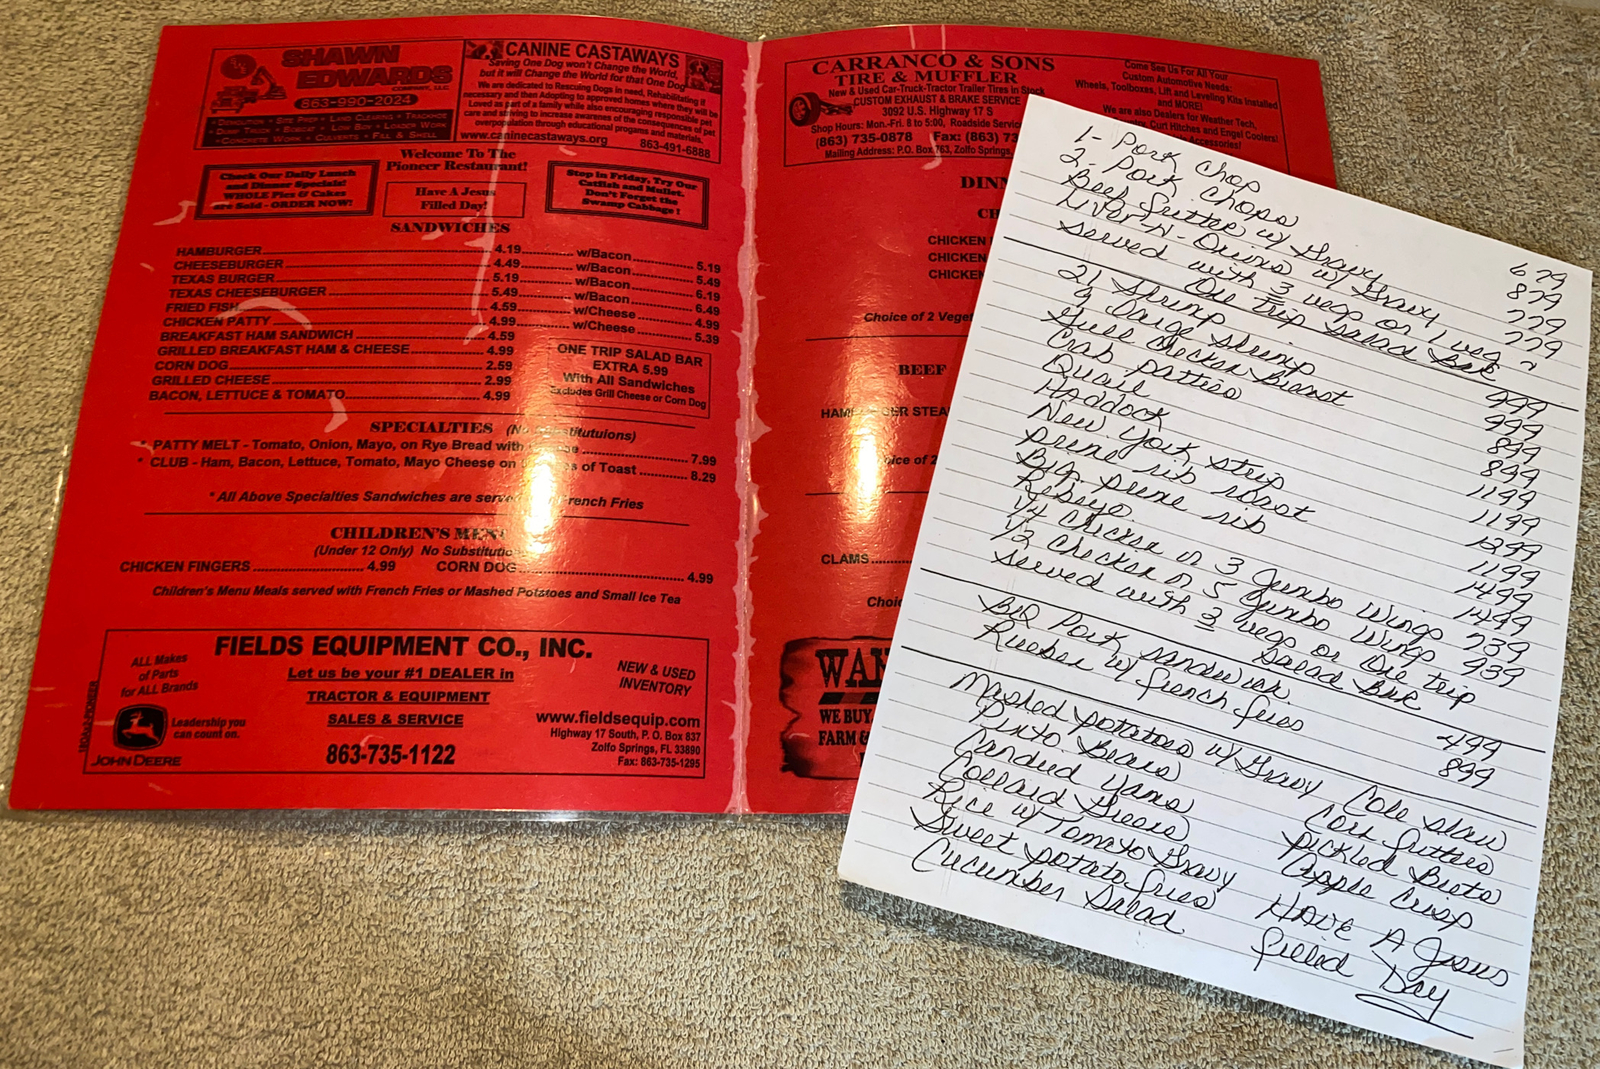 SHAWN
EDWARDS
COMPANY, LLC
863-990-2024
CANINE CASTAWAYS
Saving One Dog won't Change the World,
but it will Change the World for that One Dog
We are dedicated to Rescuing Dogs in need, Rehabilitating if
necessary and then Adopting to approved homes where they will be
Loved as part of a family while also encouraging responsible pet
care and striving to increase awareness of the consequences of pet
overpopulation through educational progams and materials.
www.caninecastaways.org 863-491-6888
Welcome To The
Pioneer Restaurant!
Check Our Daily Lunch
and Dinner Specials!
WHOLE Pies & Cakes
are Sold - ORDER NOW!
Have A Jesus
Filled Day!
Stop in Friday, Try Our
Catfish and Mullet.
Don't Forget the
Swamp Cabbage!
SANDWICHES
HAMBURGER 4.19 w/Bacon 5.19
CHEESEBURGER 4.49 w/Bacon 5.49
TEXAS BURGER 5.19 w/Bacon 6.19
TEXAS CHEESEBURGER 5.49 w/Bacon 6.49
FRIED FISH 4.59 w/Cheese 4.99
CHICKEN PATTY 4.99 w/Cheese 5.39
BREAKFAST HAM SANDWICH 4.59
GRILLED BREAKFAST HAM & CHEESE 4.99
CORN DOG 2.59
GRILLED CHEESE 2.99
BACON, LETTUCE & TOMATO 4.99
ONE TRIP SALAD BAR
EXTRA 5.99
With All Sandwiches
Excludes Grill Cheese or Corn Dog
SPECIALTIES (No Substitutuions)
* PATTY MELT - Tomato, Onion, Mayo, on Rye Bread with 7.99
* CLUB - Ham, Bacon, Lettuce, Tomato, Mayo Cheese on of Toast 8.29
* All Above Specialties Sandwiches are served French Fries
CHILDREN'S MENU
(Under 12 Only) No Substitutio
CHICKEN FINGERS 4.99 CORN DOG 4.99
Children's Menu Meals served with French Fries or Mashed Potatoes and Small Ice Tea
FIELDS EQUIPMENT CO., INC.
ALL Makes
of Parts
for ALL Brands
Let us be your #1 DEALER in
TRACTOR & EQUIPMENT
SALES & SERVICE
863-735-1122
NEW & USED
INVENTORY
Leadership you
can count on.
JOHN DEERE
www.fieldsequip.com
Highway 17 South, P. O. Box 837
Zolfo Springs, FL 33890
Fax: 863-735-1295
CARRANCO & SONS
TIRE & MUFFLER
New & Used Car-Truck-Tractor Trailer Tires in Stock
CUSTOM EXHAUST & BRAKE SERVICE
3092 U.S. Highway 17 S
Shop Hours: Mon.-Fri. 8 to 5:00, Roadside Service
(863) 735-0878 Fax: (863) 73
Mailing Address: P.O. Box 763, Zolfo Springs,
Come See Us For All Your
Custom Automotive Needs:
Wheels, Toolboxes, Lift and Leveling Kits Installed
and MORE!
We are also Dealers for Weather Tech,
Curt Hitches and Engel Coolers!
DINN
CH
CHICKEN
CHICKEN
CHICKEN
Choice of 2 Veget
BEEF
HAMBURGER STEA
oice of 2
CLAMS
Choic
WAN
WE BUY
FARM &
1- Pork Chop 679
2- Pork Chops 879
Beef fritter w/ Gravy 779
Liver-N-Onions w/ Gravy 779
Served with 3 vegs or 1 veg
One trip Salad Bar
21 Shrimp 999
9 Large Shrimp 999
Gull Chicken Breast 899
Crab patties 899
Quail 1199
Haddock 1199
New York strip 1299
prime rib roast 1199
Big prime rib 1499
Ribeye 1499
1/4 Chicken or 3 Jumbo Wings 739
1/2 Chicken or 5 Jumbo Wings 939
Served with 3 vegs or One trip
Salad Bar
BBQ Pork sandwich 499
Rueben w/ french fries 899
Mashed potatoes w/ Gravy Cole slaw
Pinto Beans Corn fritters
Candied Yams Pickled Beets
Collard Greens Apple Crisp
Rice w/ Tomato Gravy
Sweet potato fries
Cucumber Salad
HAVE A Jesus
filled Day